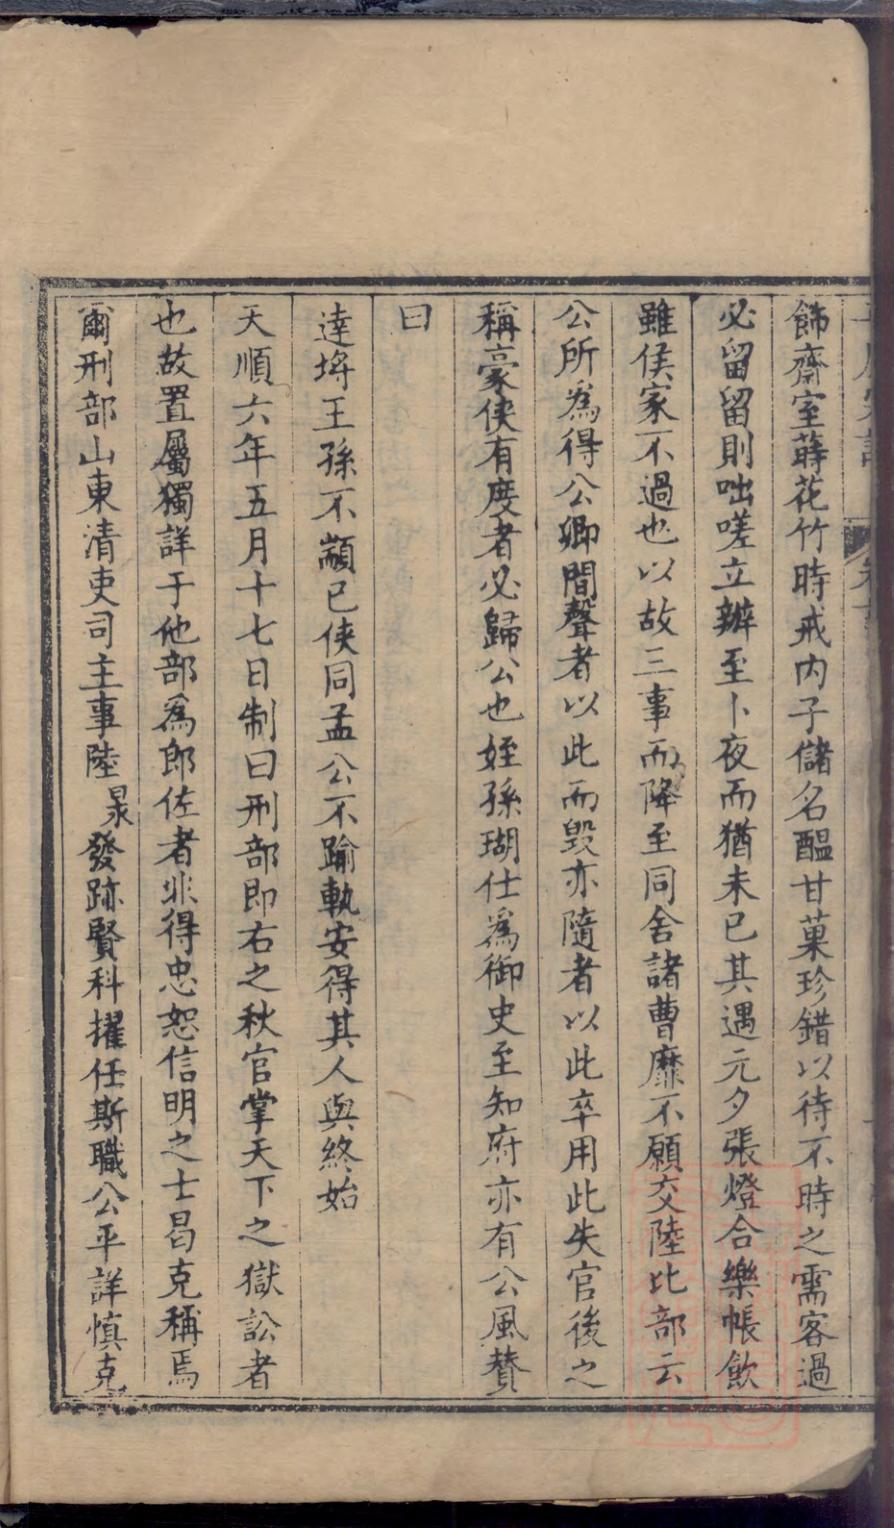 飾齋室蒔花竹時戒内子儲名醖甘菓珍錯以待不時之需客過
必留留則咄嗟立辦至卜夜而猶未已其遇元夕張燈合樂帳飲
雖侯家不過也以故三事而降至同舍諸曹靡不願交陸比部云
公所為得公卿間聲者以此而毀亦隨者以此卒用此失官後之
稱豪俠有度者必歸公也姪孫瑚仕為御史至知府亦有公風賛
曰
達埓王孫不顓已俠同孟公不踰軌安得其人與終始
天順六年五月十七日制曰刑部即右之秋官掌天下之獄訟者
也故置屬獨詳于他部為郎佐者非得忠恕信明之士曷克稱焉
爾刑部山東清吏司主事陸㫤發跡賢科擢任斯職公平詳慎克